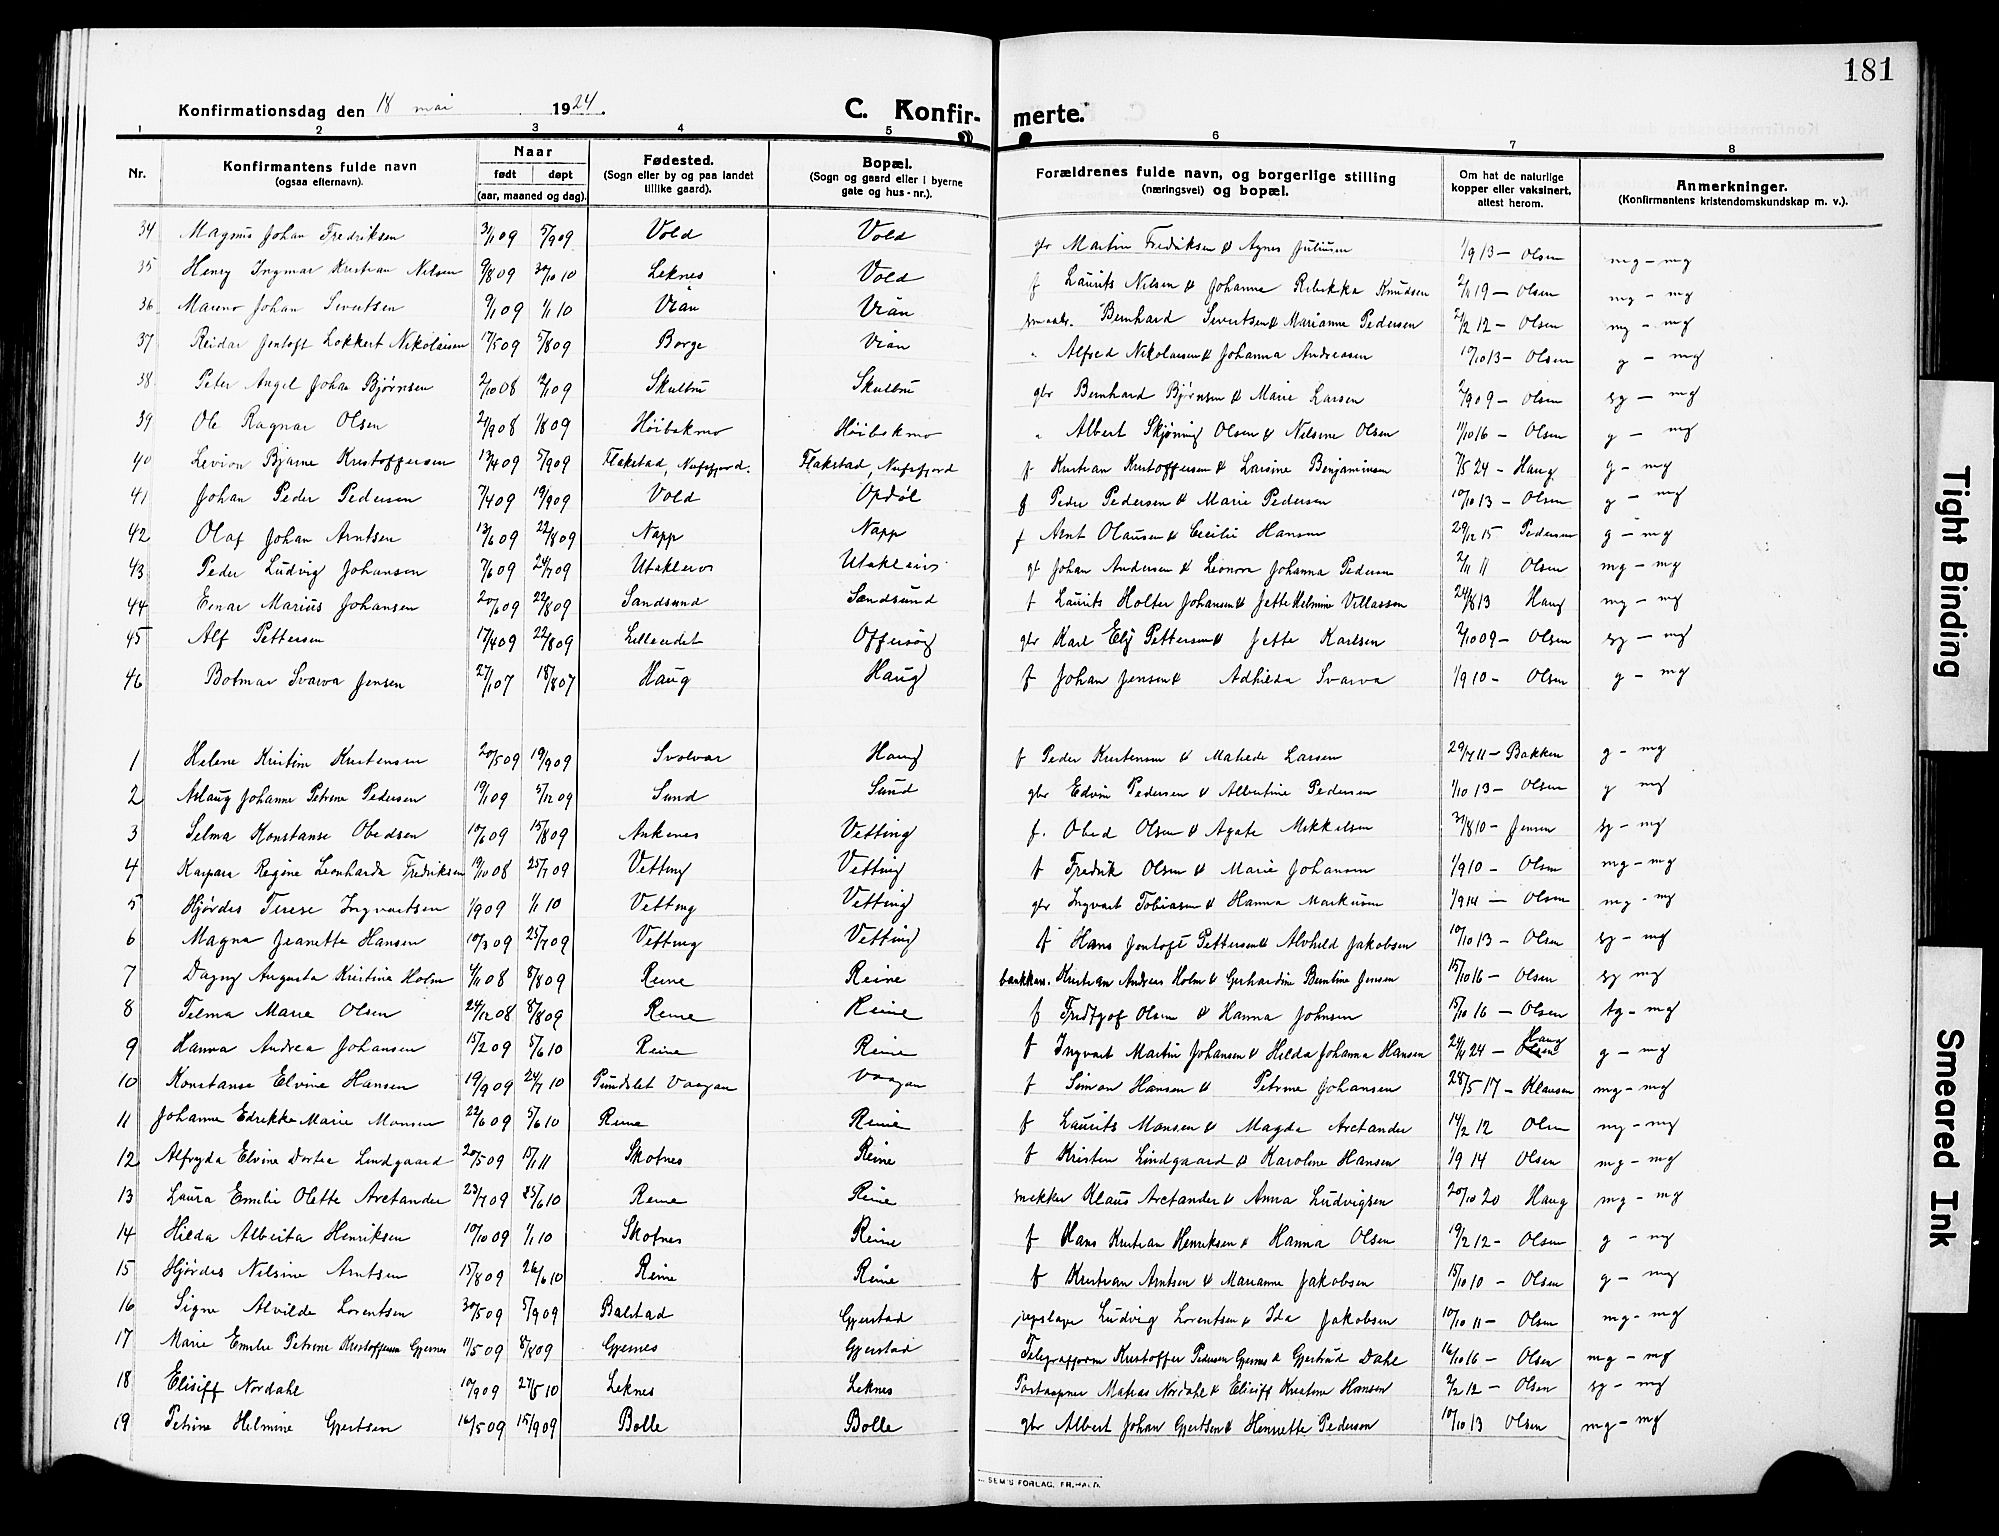 181
Konfirmationsdag den 18 mai 1924. C. Konfirmerte.
1 2 3 4 5 6 7 8
Nr. Konfirmantens fulde navn (ogsaa efternavn). Naar født døpt (aar, maaned og dag). Fødested. (Sogn eller by og paa landet tillike gaard). Bopæl. (Sogn og gaard eller i byerne gate og hus-nr.). Forældrenes fulde navn, og borgerlige stilling (næringsvei) og bopæl. Om hat de naturlige kopper eller vaksinert, attest herom. Anmerkninger. (Konfirmantens kristendomskundskap m. v.).
34 Magnus Johan Fredriksen 3/1 09 5/9 09 Vold Vold gbr Martin Fredriksen & Agnes Juliusen 1/9 13 - Olsen mg - mg
35 Henry Ingmar Kristian Nilsen 9/8 09 30/10 10 Leknes Vold f Laurits Nilsen & Johanna Rebekka Knudsen 2/1 19 - Olsen mg - mg
36 Mareno Johan Sivertsen 9/1 09 1/1 10 Vian Vian Bernhard Sivertsen & Marianne Pedersen 2/2 12 - Olsen mg - mg
37 Reidar Jentoft Lokkert Nikolaisen 17/5 09 5/8 09 Borge Vian " Alfred Nikolaisen & Johanna Andreasen 10/10 13 - Olsen g - mg
38 Peter Angel Johan Bjørnsen 2/10 08 12/1 09 Skulbru Skulbru gbr Bernhard Bjørnsen & Marie Larsen 2/9 09 - Olsen sg - mg
39 Ole Ragnar Olsen 24/9 08 1/8 09 Høibakmo Høibakmo " Albert Skjønvig Olsen & Nilsine Olsen 11/10 16 - Olsen g - mg
40 Levion Bjarne Kristoffersen 17/4 09 5/9 09 Flakstad, Nufsfjord. Flakstad, Nufsfjord f Kristian Kristoffersen & Larsine Benjaminsen 7/5 24 - Haug g - mg
41 Johan Peder Pedersen 7/4 09 19/9 09 Vold Opdøl f Peder Pedersen & Marie Pedersen 10/10 13 - Olsen g - mg
42 Olaf Johan Arntsen 13/6 09 22/8 09 Napp Napp f Arnt Olausen & Cecilie Hansen 29/12 15 Pedersen g - mg
43 Peder Ludvig Johansen 7/6 09 24/7 09 Utakleiv Utakleiv gb Johan Andersen & Leonora Johanna Pedersen 2/11 11 Olsen mg - mg
44 Einar Marius Johansen 20/6 09 22/8 09 Sandsund Sandsund f Laurits Holter Johansen & Jette Helmine Villassen 24/8 13 Haug mg - mg
45 Alf Pettersen 17/4 09 22/8 09 Lilleeidet Offersøy gbr Karl Elij Pettersen & Jette Karlsen 2/10 09 - Olsen sg - mg
46 Botmar Svarva Jensen 27/1 07 18/8 07 Haug Haug f Johan Jensen & Adhilda Svarva 1/9 10 - Olsen g - mg
1 Helene Kristine Kristensen 20/5 09 19/9 09 Svolvær Haug f Peder Kristensen & Matilde Larsen 29/7 11 - Bakken g - mg
2 Aslaug Johanne Petrine Pedersen 19/1 09 5/12 09 Sund Sund gbr Edvin Pedersen & Albertine Pedersen 1/10 13 - Olsen g mg
3 Selma Konstanse Obedsen 10/6 09 15/8 09 Ankenes Vetting f. Obed Olsen & Agate Mikkelsen 31/8 10 - Jensen sg - mg
4 Kaspara Regine Leonharda Fredriksen 19/10 08 25/7 09 Vetting Vetting f Fredrik Olsen & Marie Johansen 1/9 10 - Olsen mg - mg
5 Hjørdis Terese Ingvartsen 1/9 09 1/1 10 Vetting Vetting gbr Ingvart Tobiasen & Hanna Markusen 1/9 14 - Olsen mg - mg
6 Magna Jeanette Hansen 10/3 09 25/7 09 Vetting Vetting f Hans Jentoft Pettersen & Alvhild Jakobsen 10/10 13 - Olsen sg - mg
7 Dagny Augusta Kristine Holm 4/11 08 8/8 09 Reine Reine bankkass. Kristian Andreas Holm & Gerhardine Berntine Jensen 15/10 16 - Olsen sg mg
8 Telma Marie Olsen 24/12 08 8/8 09 Reine Reine f Fredtjof Olsen & Hanna Johnsen 15/10 16 - Olsen tg - mg
9 Hanna Andrea Johansen 15/2 09 5/6 10 Reine Reine f Ingvart Martin Johansen & Hilda Johanna Hansen 24/4 24 - Haug g - mg
10 Konstanse Elvine Hansen 19/9 09 24/7 10 Pundslet Vaagan Vaagan f Simon Hansen & Petrine Johansen 28/5 17 - Klausen mg - mg
11 Johanne Edrikke Marie Monsen 22/6 09 5/6 10 Reine Reine f Laurits Monsen & Magda Arctander 14/2 12 Olsen mg - mg
12 Alfryda Elvine Dortea Lindgaard 20/5 09 15/1 11 Skotnes Reine f Kristen Lindgaard & Karoline Hansen 1/9 14 Olsen mg - mg
13 Laura Emilie Olette Arctander 23/7 09 25/6 10 Reine Reine snekker Klaus Arctander & Anna Ludvigsen 20/10 20 Haug mg - mg
14 Hilda Alberta Henriksen 10/10 09 1/1 10 Skotnes Reine f Hans Kristian Henriksen & Hanna Olsen 19/2 12 - Olsen g - mg
15 Hjørdis Nilsine Arntsen 15/8 09 26/6 10 Reine Reine f Kristian Arntsen & Marianne Jakobsen 15/10 10 - Olsen g - mg
16 Signe Alvilde Lorentsen 30/5 09 5/9 09 Balstad Gjerstad Ludvig Lorentsen & Ida Jakobsen 10/10 11 - Olsen mg - mg
17 Marie Emilie Petrine Kristoffersen Gjernes 11/5 09 8/8 09 Gjernes Gjerstad Telegrafform Kristoffer Pedersen Gjernes & Gjertrud Dahl 16/10 16 - Olsen mg - mg
18 Elisiff Nordahl 10/9 09 27/5 10 Leknes Leknes Postaapner Matias Nordahl & Elisiff Kristine Hansen 2/2 12 - Olsen sg - mg
19 Petrine Helmine Gjertsen 16/5 09 15/9 09 Bolle Bolle gbr Albert Johan Gjertsen & Henriette Pedersen 10/10 13 Olsen mg - mg
SEM'S FORLAG, FR.HALD.
Tight Binding
Smeared Ink